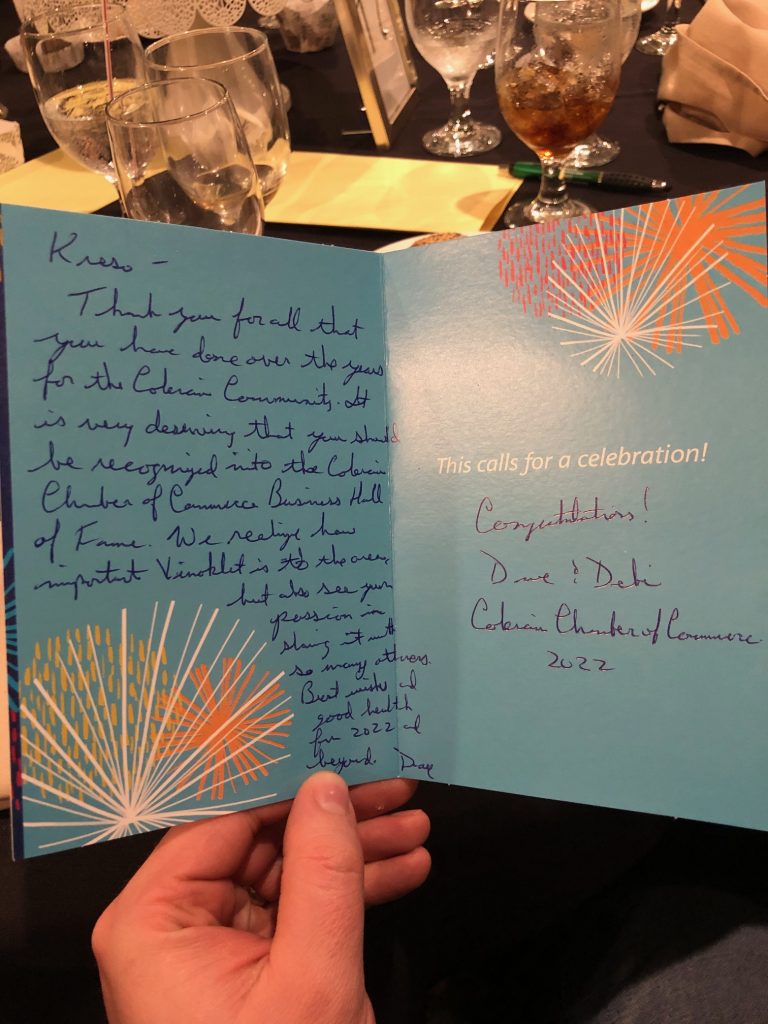 Kreso -
Thank you for all that
you have done over the years
for the Colerain Community. It
is very deserving that you should
be recognized into the Colerain
Chamber of Commerce Business Hall
of Fame. We realize how
important Vinoklet is to the area,
but also see your
passion in
sharing it with
so many others.
Best wishes and
good health
for 2022 and
beyond. Dave
This calls for a celebration!
Congratulations!
Dave & Debi
Colerain Chamber of Commerce
2022